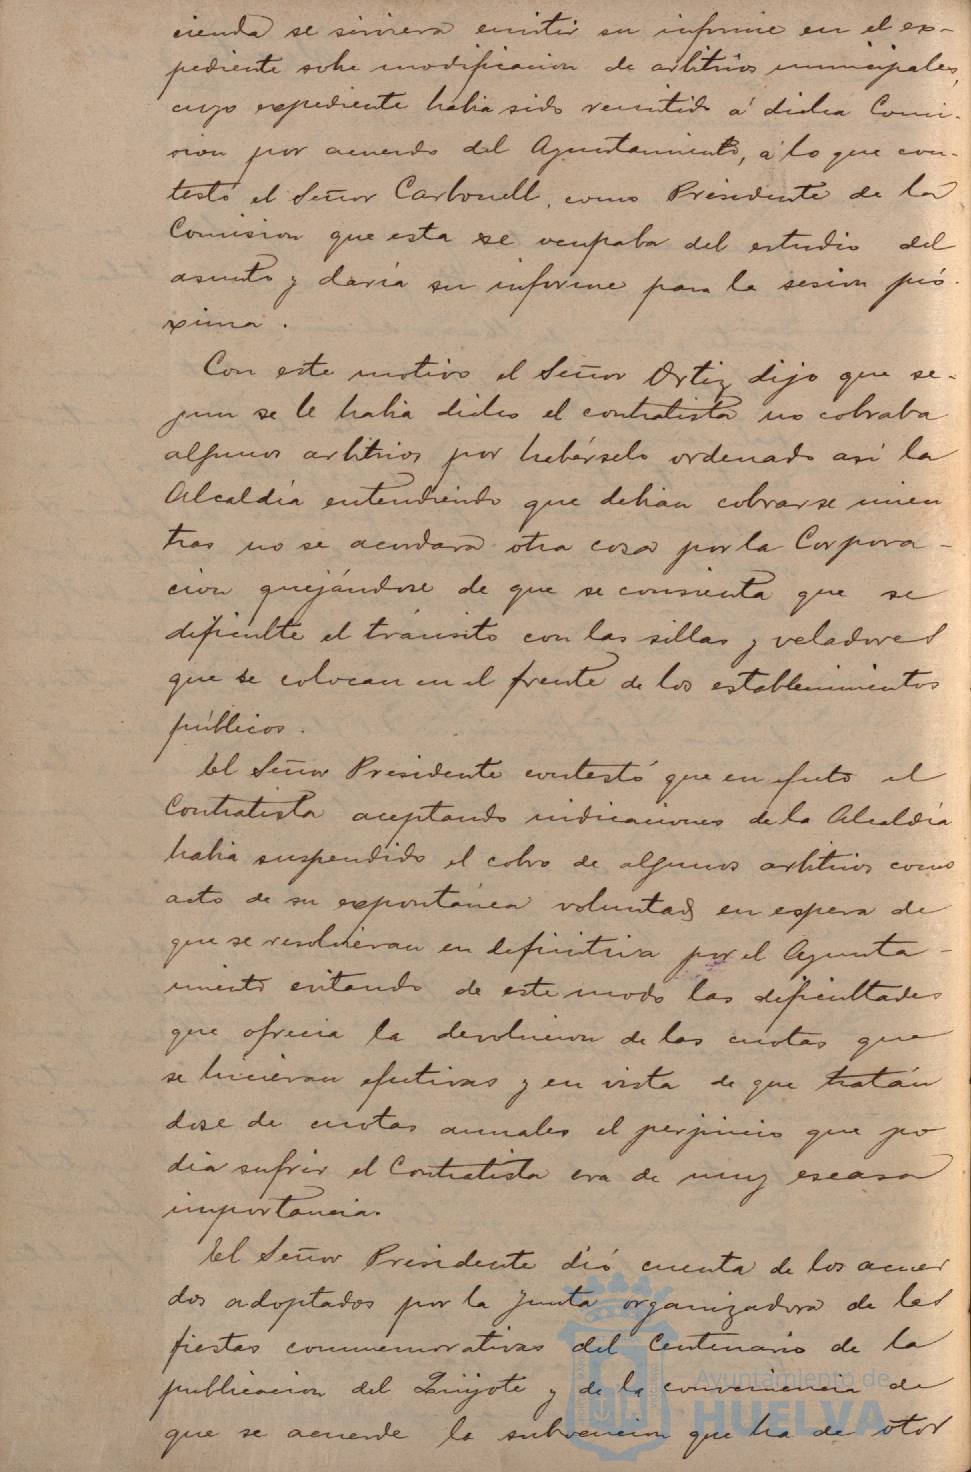 cienda se sirviera emitir su informe en el ex-
pediente sobre modificacion de arbitrios municipales,
cuyo expediente habia sido remitido á dicha Comi-
sion por acuerdo del Ayuntamiento, á lo que con-
testó el Señor Carbonell, como Presidente de la
Comision que esta se ocupaba del estudio del
asunto y daría su informe para la sesion pró-
xima.
Con este motivo el Señor Ortiz dijo que se-
gun se le habia dicho el contratista no cobraba
algunos arbitrios por habérselo ordenado así la
Alcaldía entendiendo que debian cobrarse mien
tras no se acordara otra cosa por la Corpora-
cion quejándose de que se consienta que se
dificulte el tránsito con las sillas y veladores
que se colocan en el frente de los establecimientos
públicos.
El Señor Presidente contestó que en efecto el
Contratista aceptando indicaciones de la Alcaldía
habia suspendido el cobro de algunos arbitrios como
acto de su expontánea voluntad en espera de
que se resolvieran en definitiva por el Ayunta-
miento evitando de este modo las dificultades
que ofrecia la devolucion de las cuotas que
se hicieran efectivas y en vista de que tratán
dose de cuotas anuales el perjuicio que po
dia sufrir el Contratista era de muy escasa
importancia.
El Señor Presidente dió cuenta de los acuer
dos adoptados por la Junta organizadora de las
fiestas conmemorativas del Centenario de la
publicacion del Quijote y de la conveniencia de
que se acuerde la subvencion que ha de otor
Ayuntamiento de
HUELVA